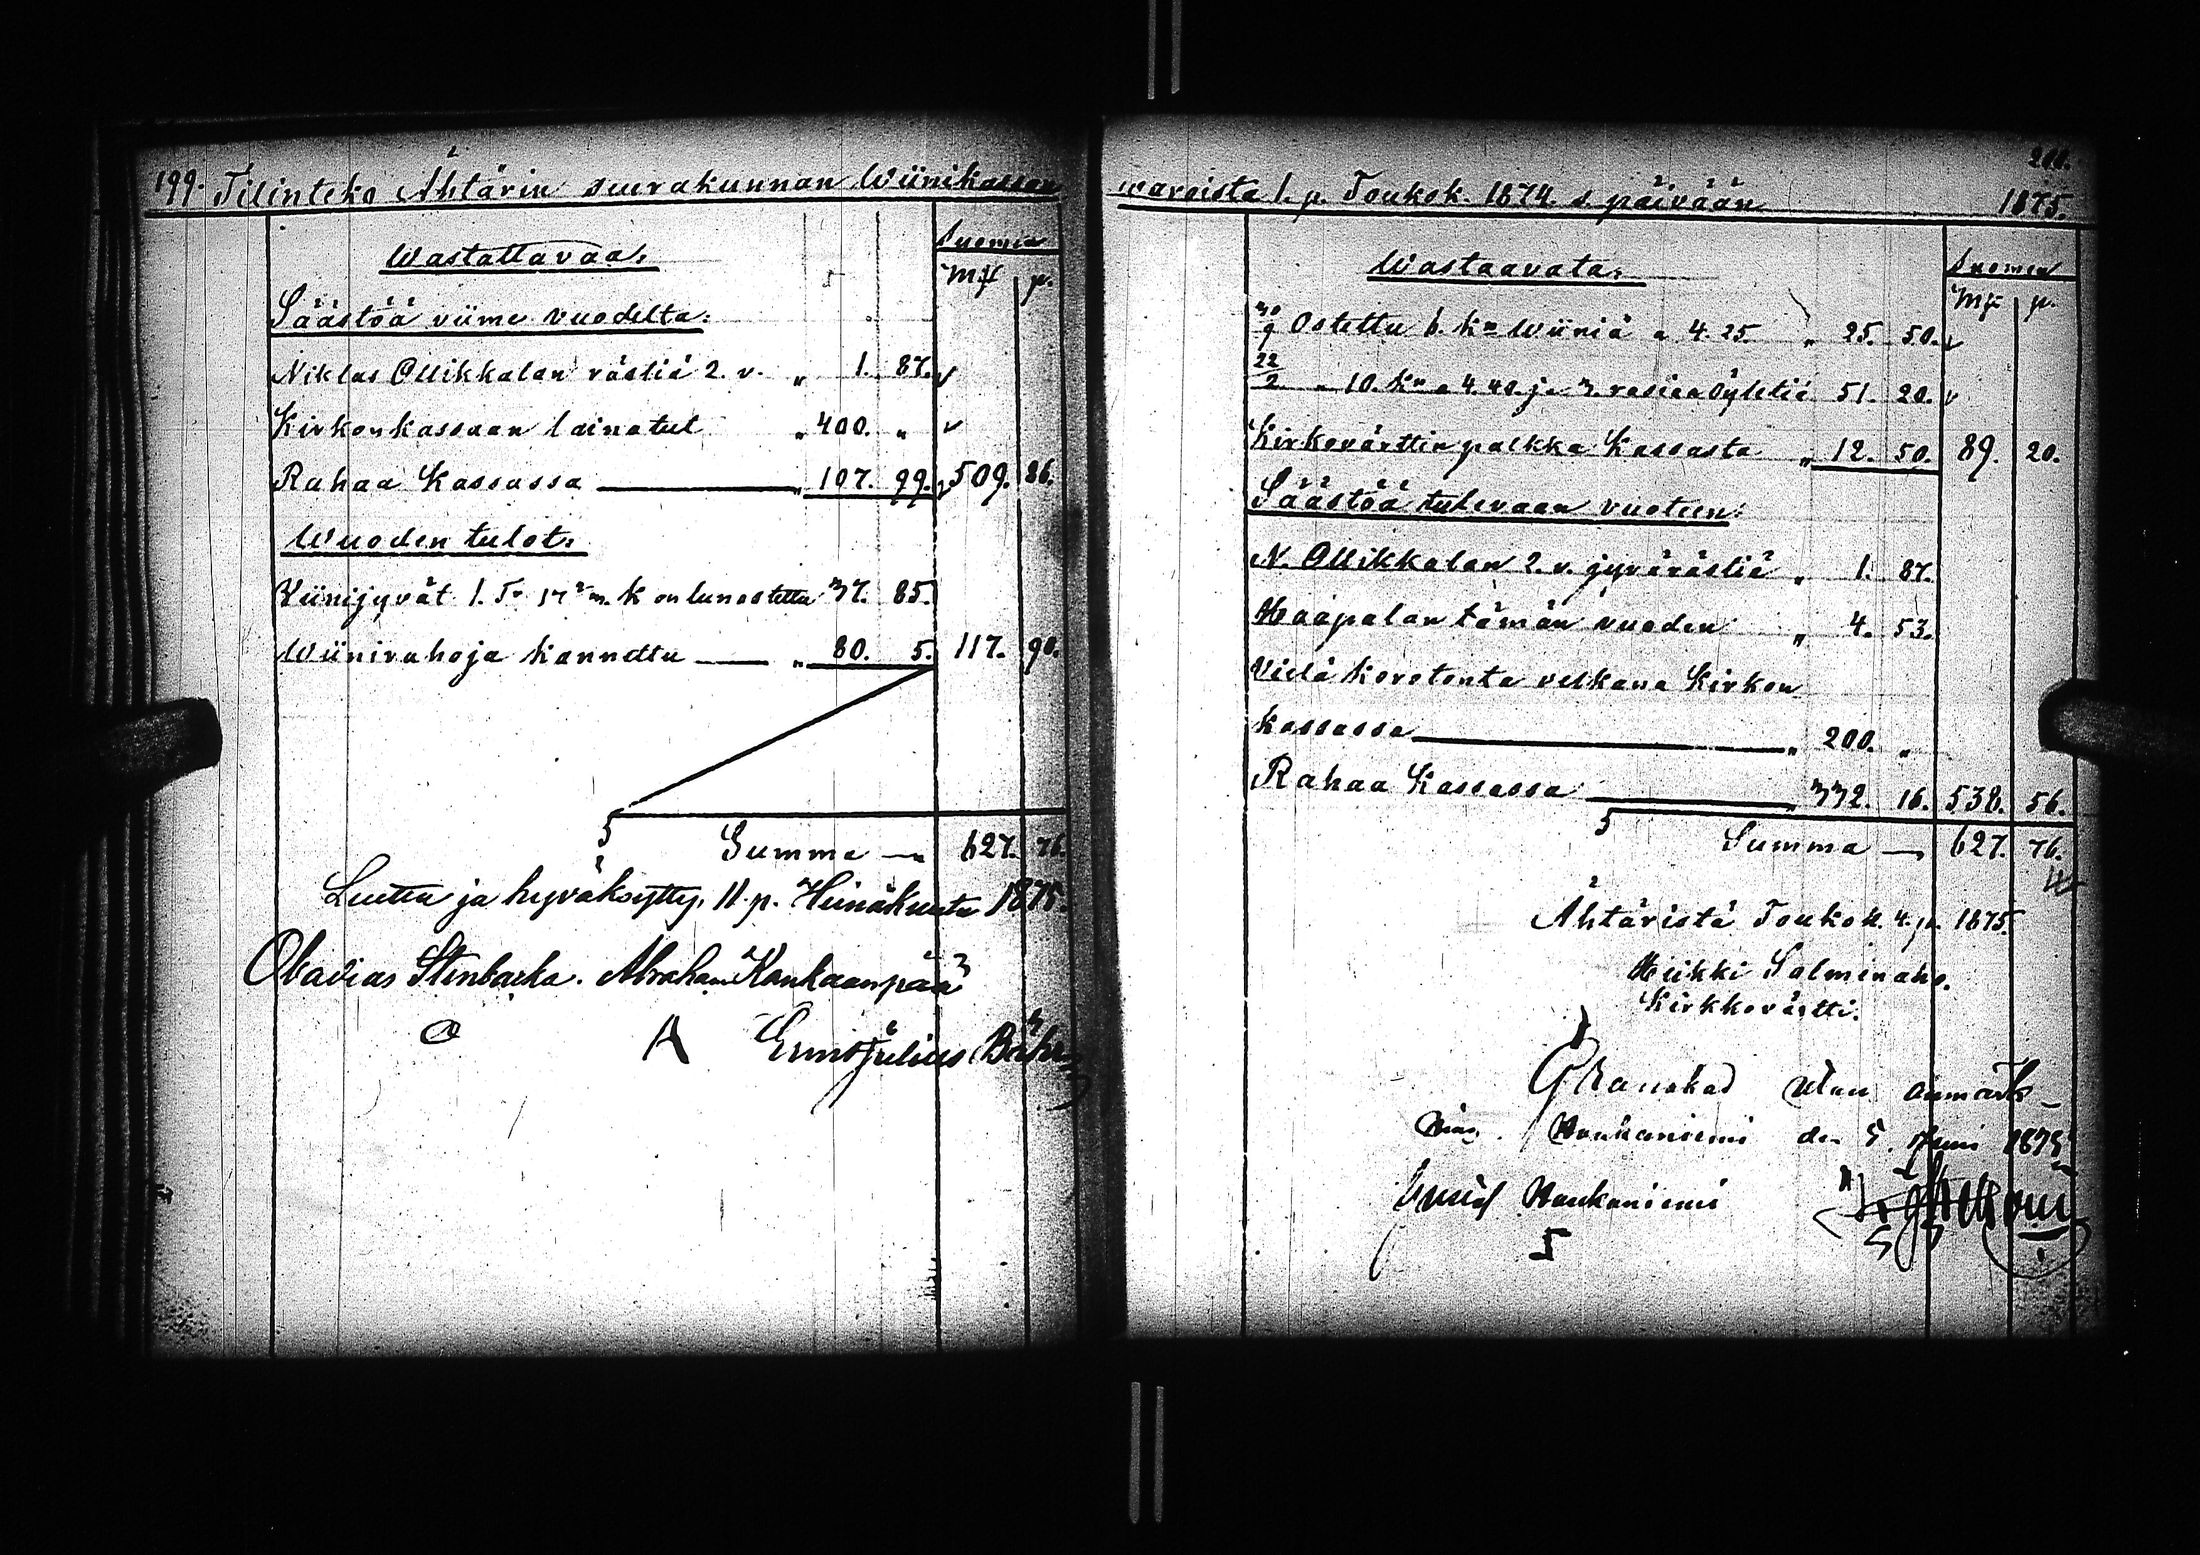 199. Tilinteko Ähtärin seurakunnan Wiinikassan
Wastattavaa.
Suomen
Mk p.
Säästöä viime vuodelta:
Niklas Ollikkalan rästiä 2. v. „ 1. 87.
Kirkonkassaan lainatut „ 400. „
Rahaa Kassassa „ 107. 99. 509. 86.
Wuoden tulot.
Viinijyvät 1. T. k on lunastettu 37. 85.
Wiinirahoja kannettu „ 80. 5. 117. 90.
Summa 627. 76.
Luettu ja hyväksytty. 11. p. Heinäkuuta 1875.
Obadias Stenbacka. Abraham Kankaanpää
Julius
200.
varoista 1. p. Toukok. 1874. s. päivään 1875.
Wastaavata:
Suomen
Mk p.
30/9 Ostettu 6. kn Wiiniä a 4. 25. „ 25. 50.
22/2 „ 10. kn a 4. 40. ja 3. rasiaa Öylttiä 51. 20.
Kirkovärttin palkka Kassasta „ 12. 50. 89. 20.
Säästöä tulevaan vuoteen:
N. Ollikkalan 2. v. jyvärästiä „ 1. 87.
Haapalan tämän vuoden „ 4. 53.
Vielä korotonta velkana Kirkon
kassassa „ 200. „
Rahaa Kassassa „ 332. 16. 538. 56.
Summa 627. 76.
Ähtäristä Toukok. 4. p. 1875.
Heikki Salminaho.
Kirkkovärtti.
Granskad utan anmärk-
ning. Haukaniemi den 5. Juni 1875
Haukaniemi